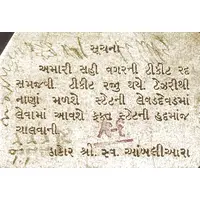 સૂચના
અમારી સહી વગરની ટીકીટ રદ
સમજવી. ટિકીટ રજુ થયે ટ્રેઝરીથી
નાણાં મળશે સ્ટેટની લેવડદેવડમાં
લેવામાં આવશે ફક્ત સ્ટેટની હદમાંજ
ચાલવાની.
ઠાકોર શ્રી. સ્વ. આંબલીઆરા